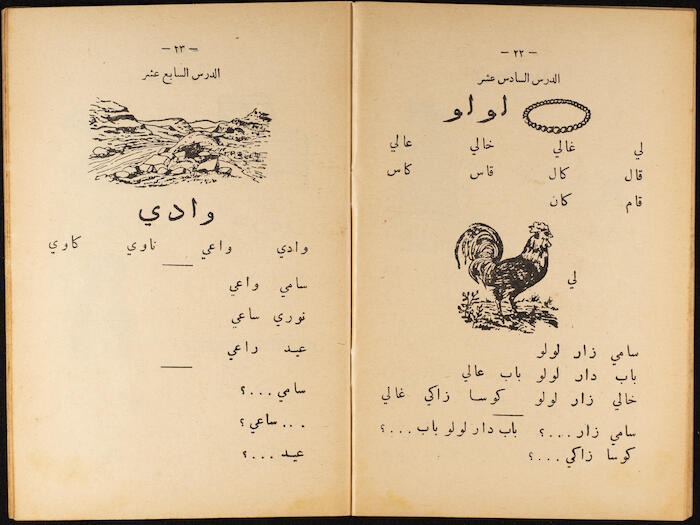 - ٢٢ -
الدرس السادس عشر
لولو
لي غالي خالي عالي
قال كال قاس كاس
قام كان
لي
سامي زار لولو
باب دار لولو باب عالي
خالي زار لولو كوسا زاكي غالي
سامي زار ...؟ باب دار لولو باب ...؟
كوسا زاكي ...؟
- ٢٣ -
الدرس السابع عشر
وادي
وادي واعي ناوي كاوي
سامي واعي
نوري ساعي
عيد راعي
سامي ...؟
... ساعي؟
عيد ...؟